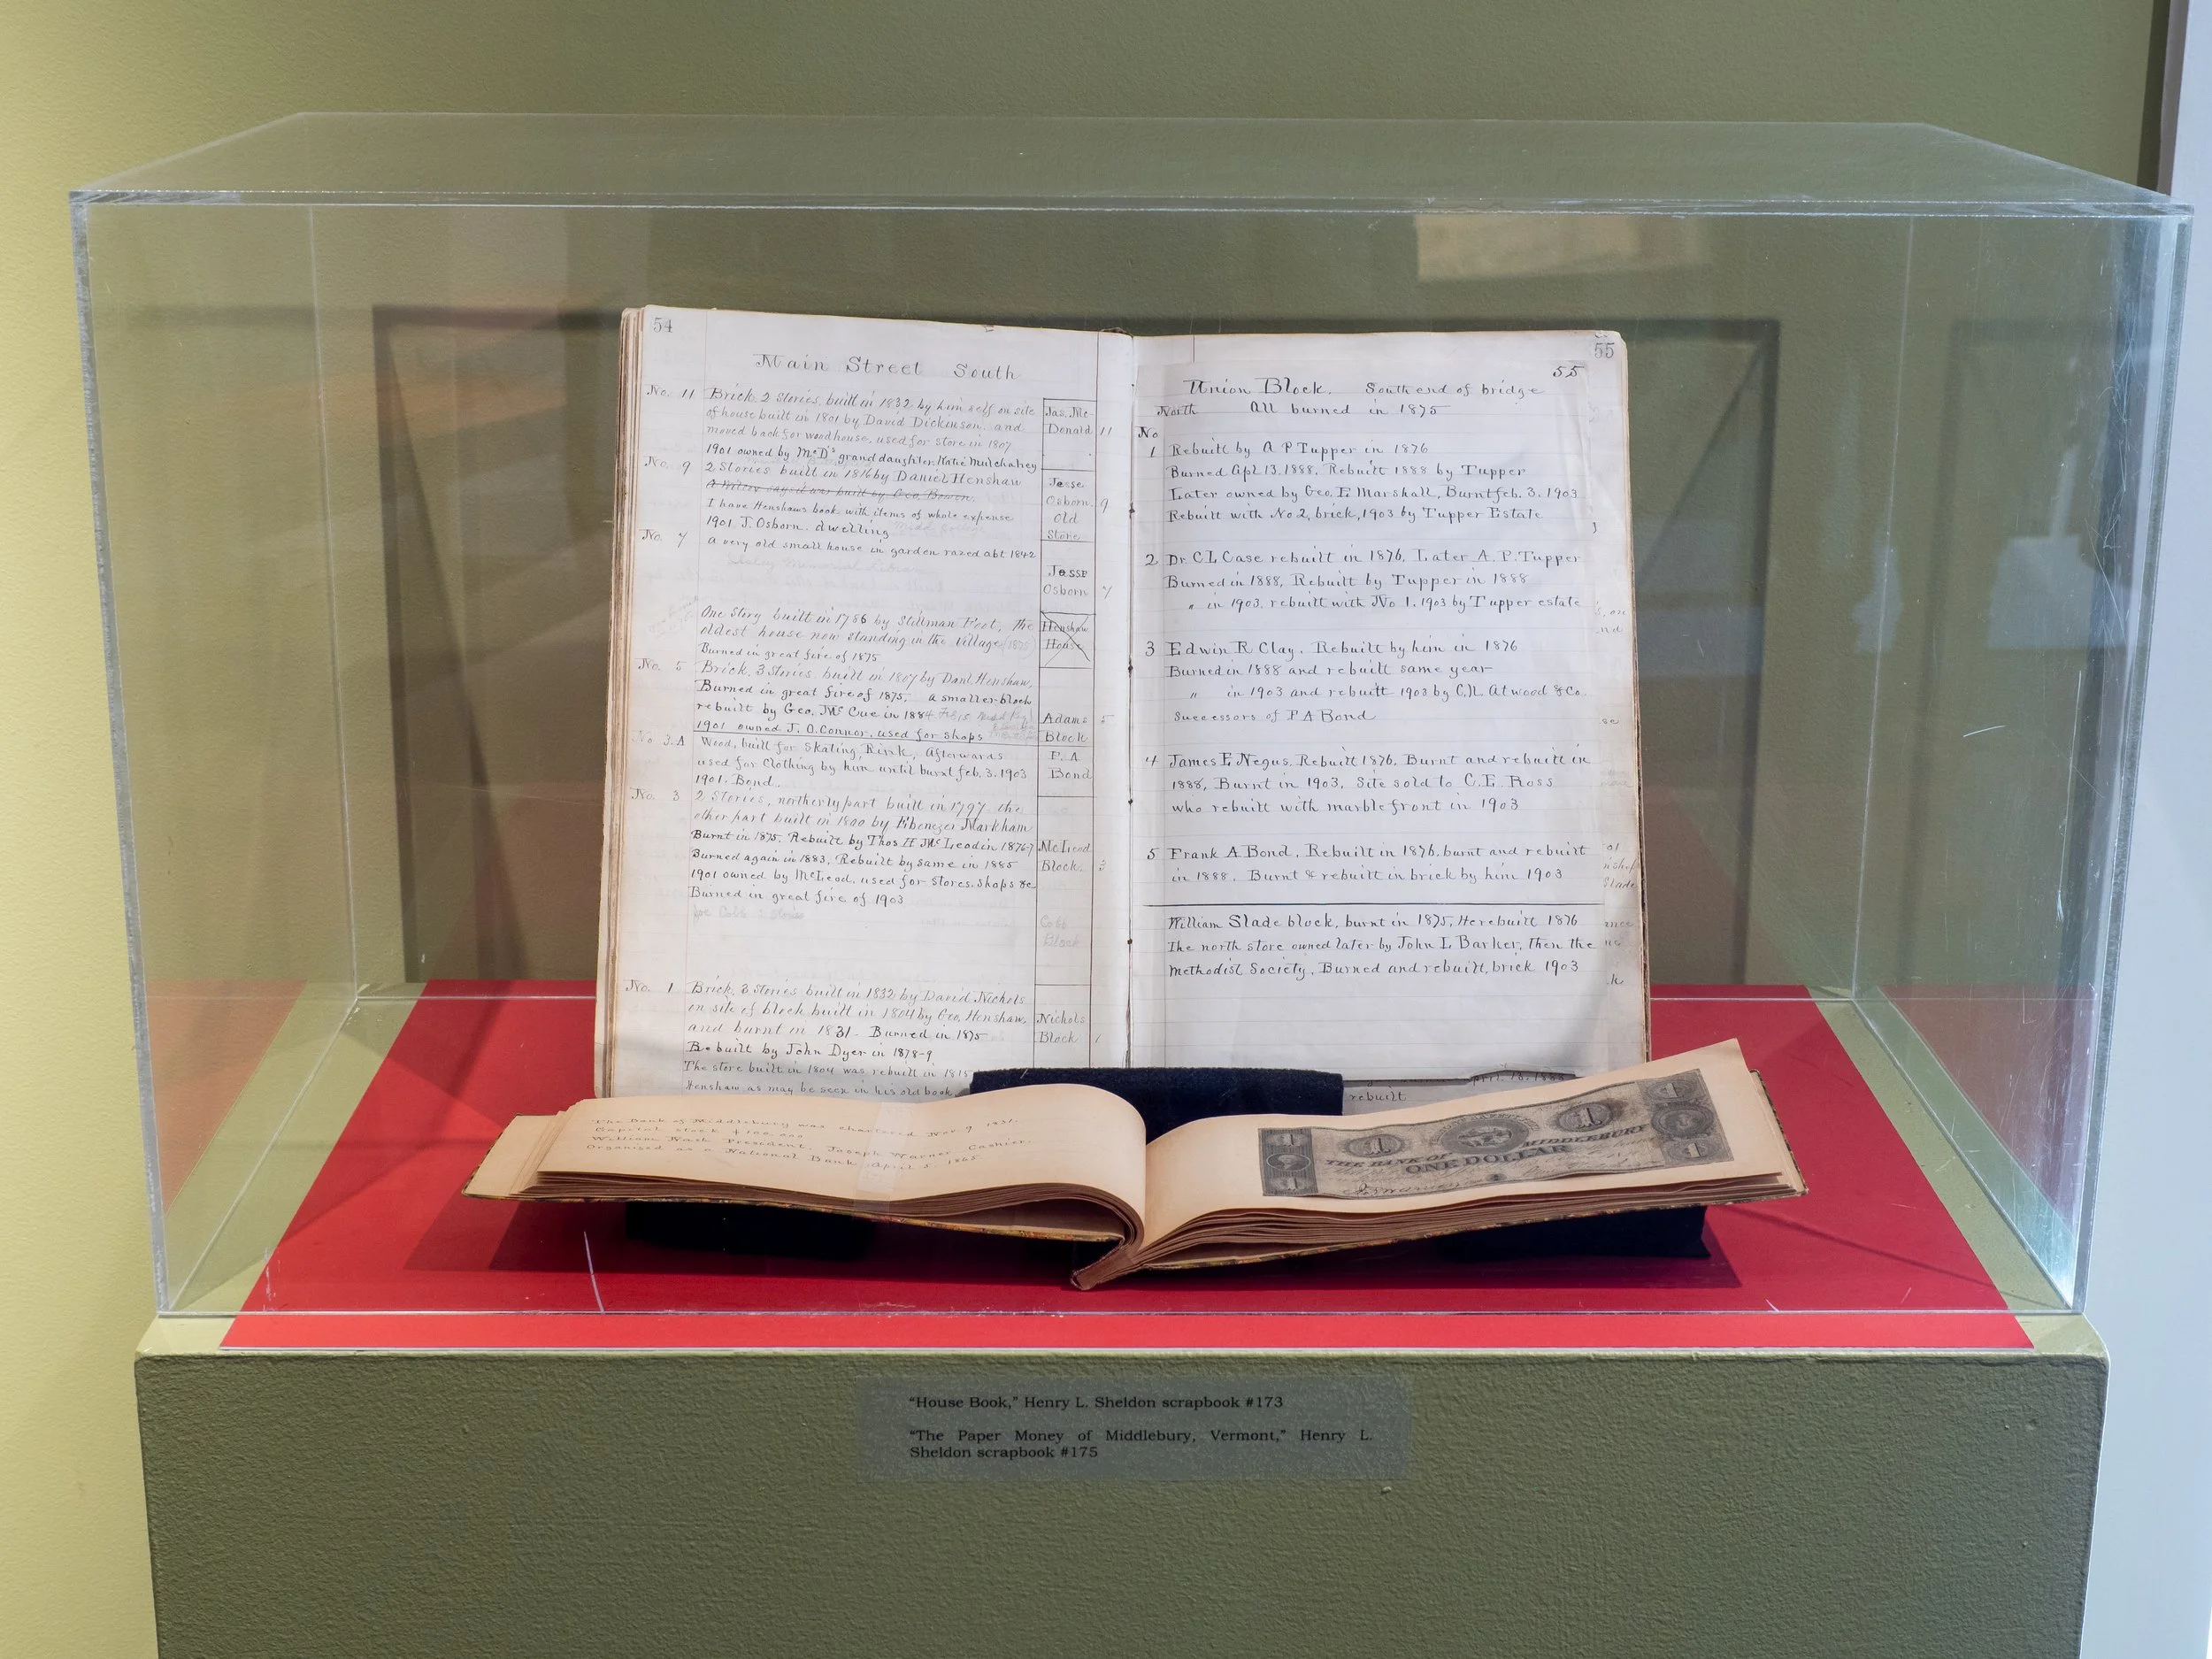 54
Main Street South
No. 11 Brick 2 Stories built in 1832 by him self on site
of house built in 1801 by David Dickinson. and
moved back for woodhouse, used for store in 1807
1901 owned by McDs grand daughter Katie Mulchahey
Jas. Mc-
Donald 11
No. 9 2 Stories built in 1816 by Daniel Henshaw
says it was built by Geo. Bowen.
I have Henshaws book with items of whole expense
1901 J. Osborn. dwelling
Jesse
Osborn 9
Old
Store
No. 7 A very old small house in garden razed abt 1842
Jesse
Osborn 7
One Story built in 1786 by Stillman Foot, the
oldest house now standing in the village (1875)
Burned in great fire of 1875
Henshaw
House
No. 5 Brick, 3 Stories, built in 1807 by Danl Henshaw,
Burned in great fire of 1875, a smaller block
rebuilt by Geo. Mc Cue in 1884
1901 owned J. O. Connor, used for shops
Adams 5
Block
No 3.A Wood, built for Skating Rink, Afterwards
used for Clothing by him until burnt feb. 3. 1903
1901. Bond.
F. A.
Bond
No. 3 2 Stories, northerly part built in 1797 the
other part built in 1800 by Ebenezer Markham
Burnt in 1875. Rebuilt by Thos H Mc Leod in 1876-7
Burned again in 1883, Rebuilt by same in 1885
1901 owned by McLeod. used for Stores. Shops &c
Burned in great fire of 1903
McLeod
Block. 3
Joe Cobb : Store
Cobb
Block
No. 1 Brick, 3 Stories built in 1832 by David Nichols
on site of block built in 1804 by Geo. Henshaw,
and burnt in 1831. Burned in 1875
Rebuilt by John Dyer in 1878-9
The store built in 1804 was rebuilt in 1815
Henshaw as may be seen in his old book
Nichols
Block 1
55
55
Union Block. South end of bridge
North All burned in 1875
No
1 Rebuilt by A P Tupper in 1876
Burned Apl 13. 1888. Rebuilt 1888 by Tupper
Later owned by Geo. E Marshall, Burnt feb. 3. 1903
Rebuilt with No 2, brick, 1903 by Tupper Estate
2 Dr. C L Case rebuilt in 1876, Later A. P. Tupper
Burned in 1888, Rebuilt by Tupper in 1888
" in 1903. rebuilt with No 1. 1903 by Tupper estate
3 Edwin R Clay. Rebuilt by him in 1876
Burned in 1888 and rebuilt same year
" in 1903 and rebuilt 1903 by C.H. Atwood & Co.
Successors of F A Bond
4 James E Negus. Rebuilt 1876. Burnt and rebuilt in
1888, Burnt in 1903, Site sold to C. E. Ross
who rebuilt with marble front in 1903
5 Frank A Bond. Rebuilt in 1876. burnt and rebuilt
in 1888. Burnt & rebuilt in brick by him 1903
William Slade block, burnt in 1875, He rebuilt 1876
The north store owned later by John L Barker, then the
Methodist Society, Burned and rebuilt, brick 1903
rebuilt
The Bank of Middlebury was chartered Nov. 9 1831.
Capital stock $100,000
William Nash President, Joseph Warner Cashier.
Organised as a National Bank April 5. 1865
1 1
THE BANK OF MIDDLEBURY
ONE DOLLAR
“House Book,” Henry L. Sheldon scrapbook #173
“The Paper Money of Middlebury, Vermont,” Henry L.
Sheldon scrapbook #175